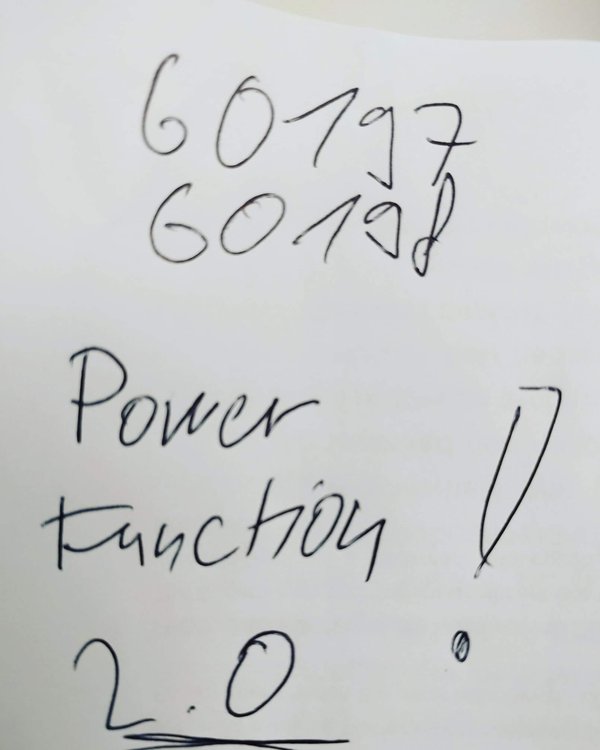 60197
60198
Power
Function !
2.0